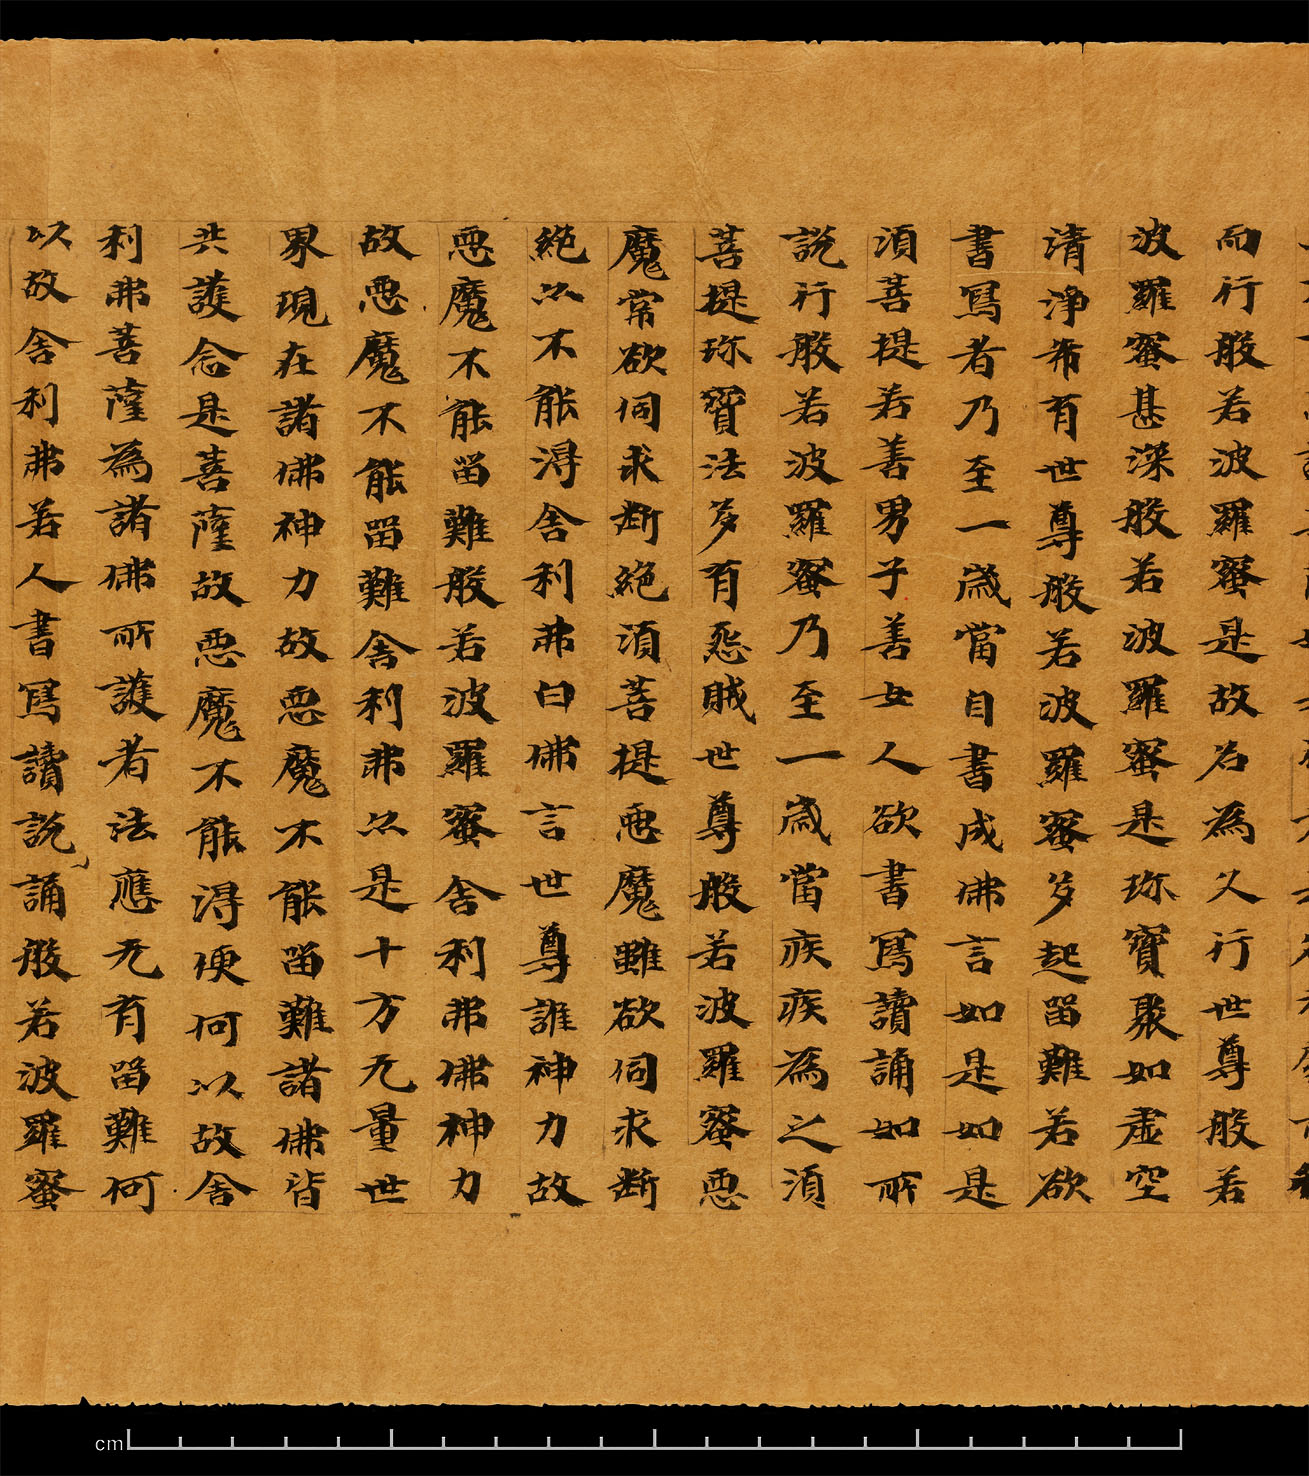 而行般若波羅蜜是故名為久行世尊般若
波羅蜜甚深般若波羅蜜是珎寶聚如虛空
清淨希有世尊般若波羅蜜多起留難若欲
書寫者乃至一歲當自書成佛言如是如是
須菩提若善男子善女人欲書寫讀誦如所
說行般若波羅蜜乃至一歲當疾疾為之須
菩提珎寶法多有怨賊世尊般若波羅蜜惡
魔常欲伺求斷絕須菩提惡魔雖欲伺求斷
絕以不能得舍利弗白佛言世尊誰神力故
惡魔不能留難般若波羅蜜舍利弗佛神力
故惡魔不能留難舍利弗以是十方无量世
界現在諸佛神力故惡魔不能留難諸佛皆
共護念是菩薩故惡魔不能得便何以故舍
利弗菩薩為諸佛所護者法應无有留難何
以故舍利弗若人書寫讀說誦般若波羅蜜
cm